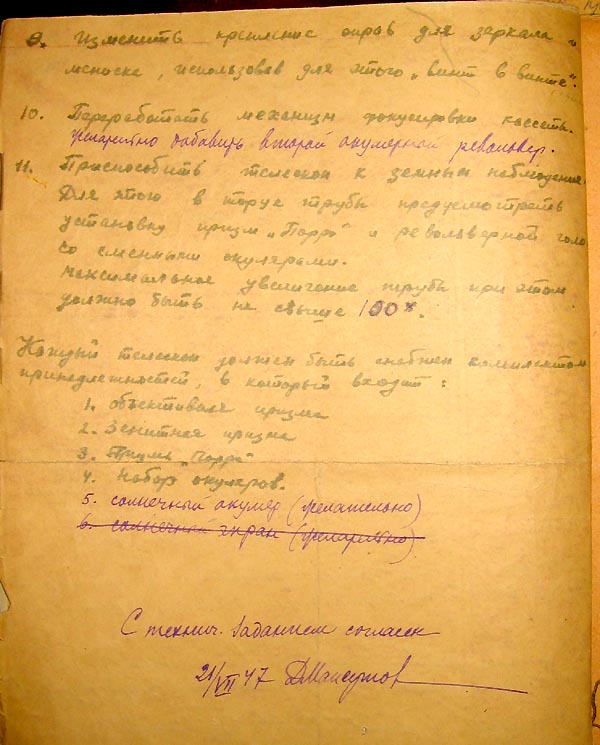 9. Изменить крепление оправ для зеркала и
мениска, использовав для этого „винт в винте".
10. Переработать механизм фокусировки кассеты.
Желательно добавить второй окулярный револьвер.
11. Приспособить телескоп к земным наблюдения
Для этого в торце трубы предусмотреть
установку призм „Порро" и револьверной голо
со сменными окулярами.
Максимальное увеличение трубы при этом
должно быть не свыше 100х.
Каждый телескоп должен быть снабжен комплектом
принадлежностей, в который входят:
1. Объективная призма
2. Зенитная призма
3. Призмы „Порро"
4. Набор окуляров.
5. солнечный окуляр (желательно)
6. солнечный экран (желательно)
С технич. заданием согласен
21/VII 47 ДМаксутов